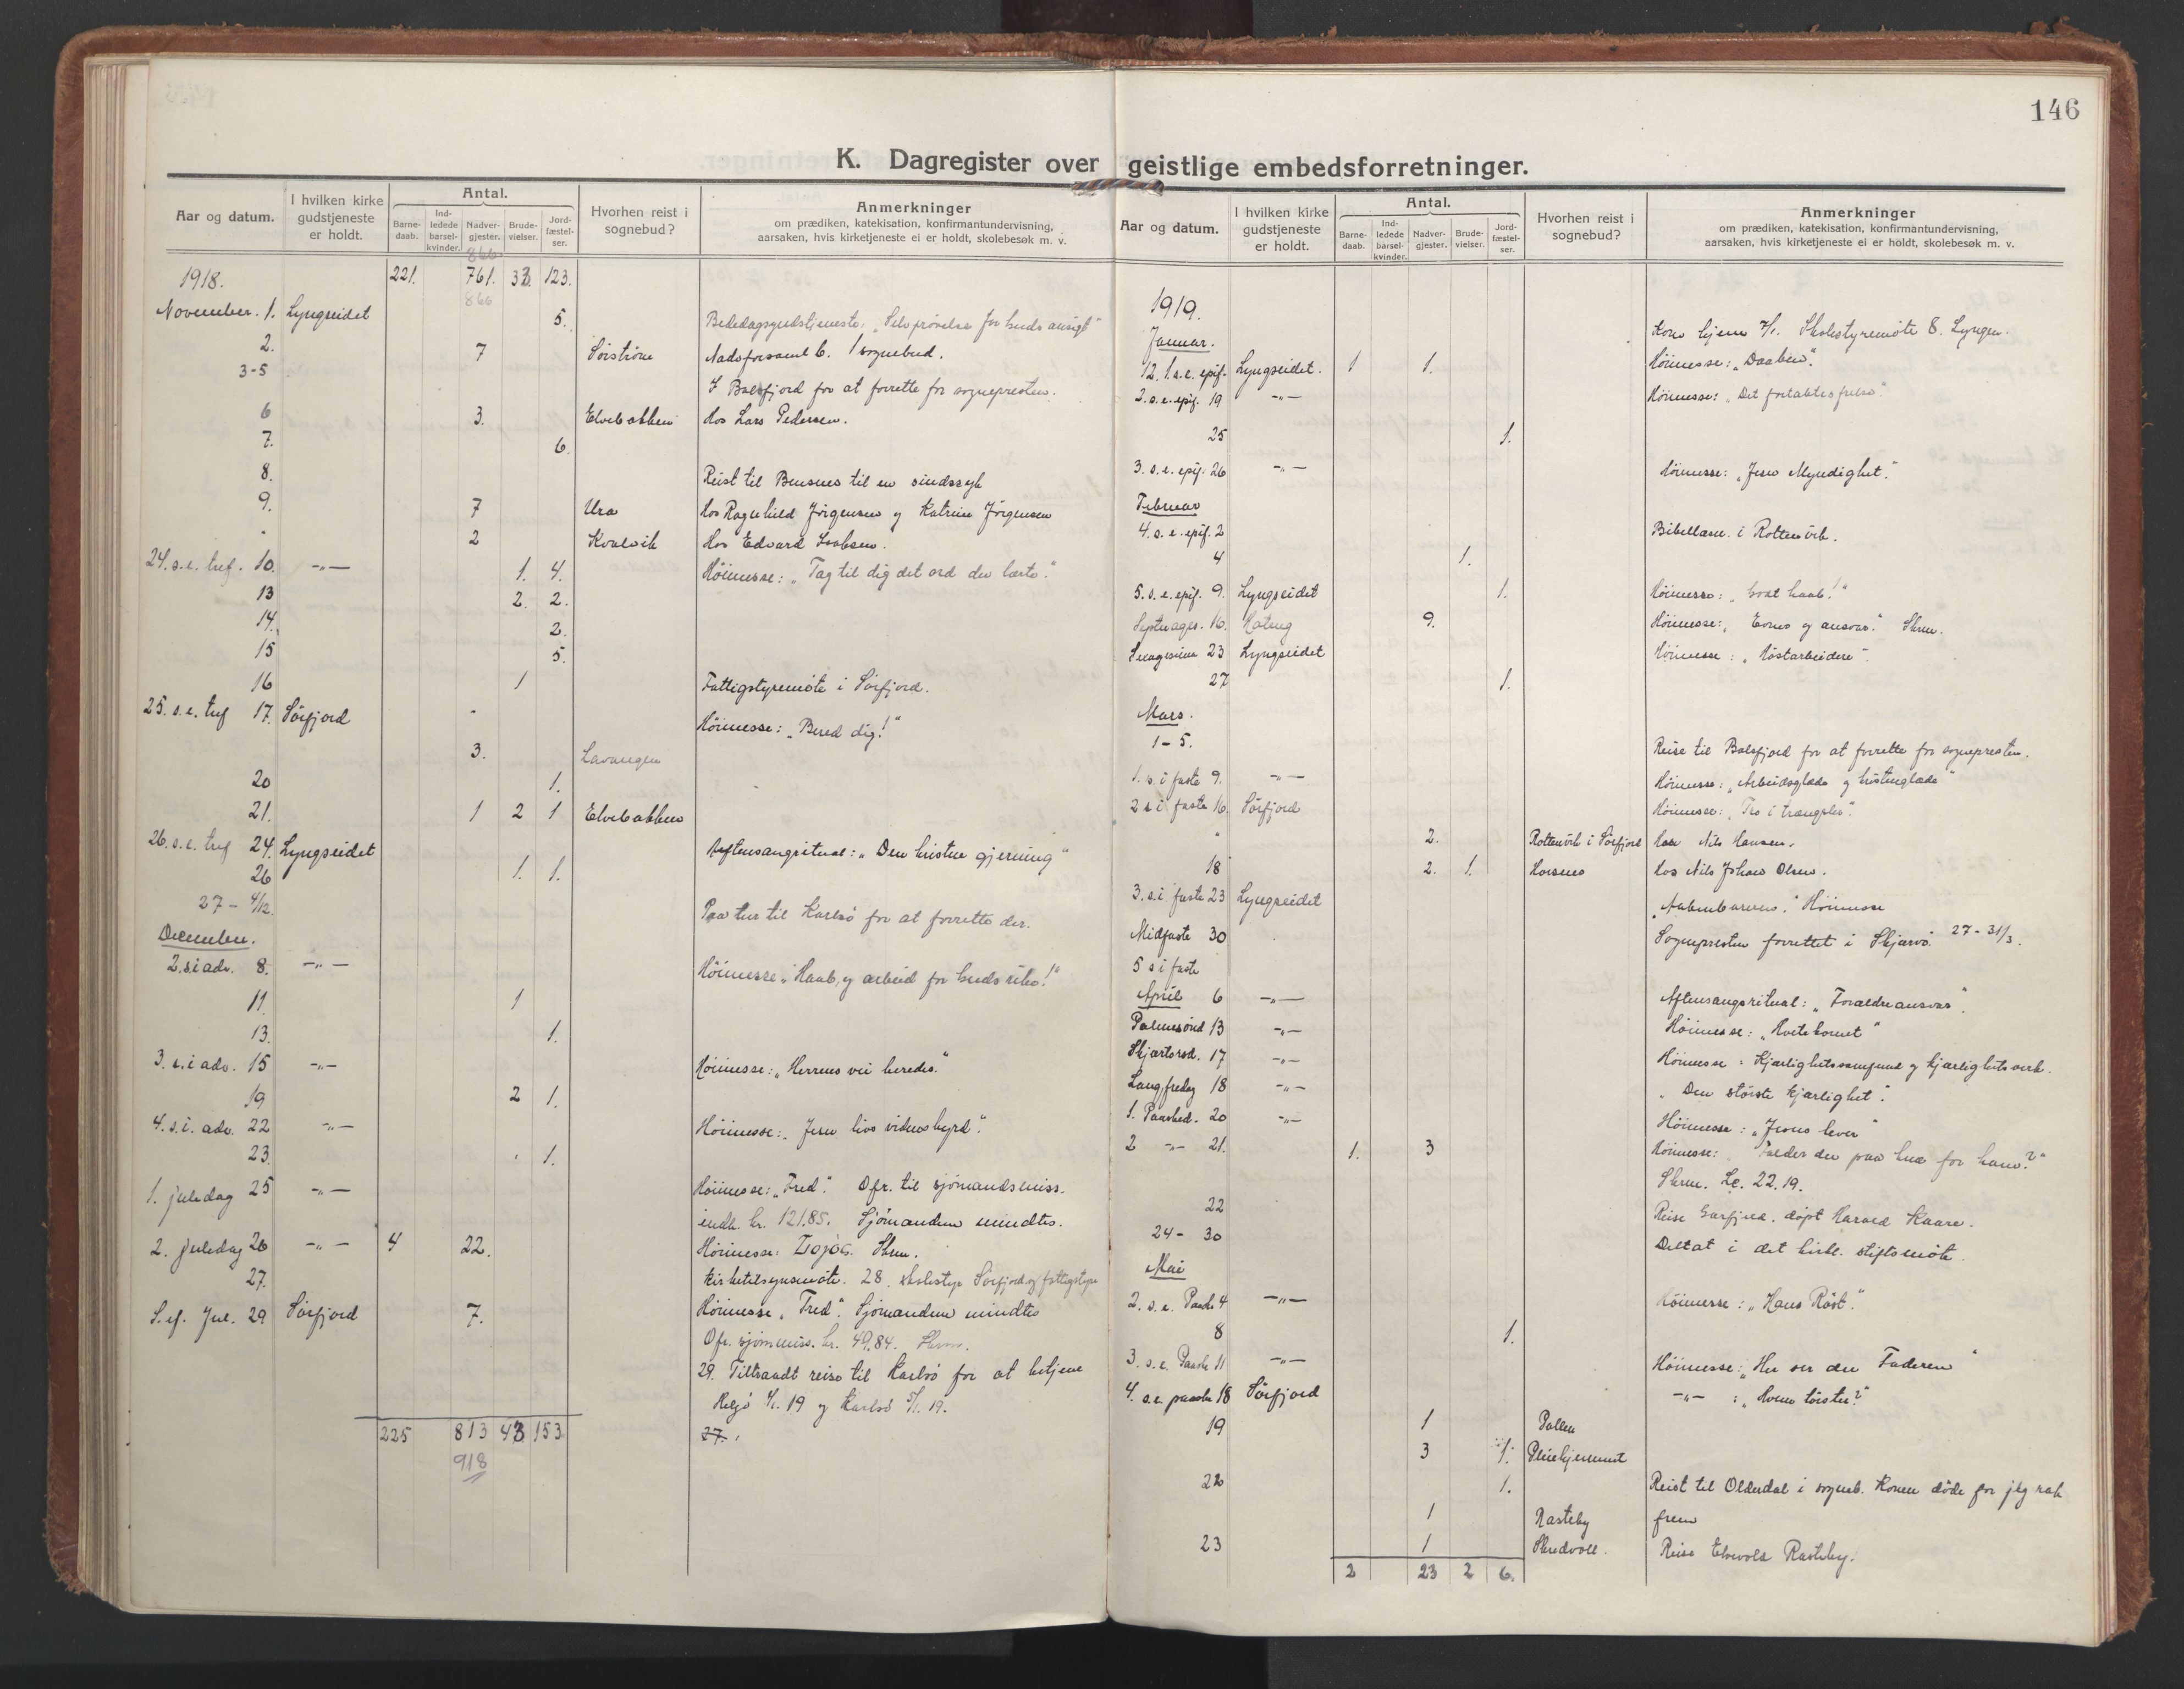 146
K. Dagregister over geistlige embedsforretninger.
Aar og datum. I hvilken kirke gudstjeneste er holdt. Antal. Barnedaab. Indledede barselkvinder. Nadvergjester. Brudevielser. Jordfæstelser. Hvorhen reist i sognebud? Anmerkninger om prædiken, katekisation, konfirmantundervisning, aarsaken, hvis kirketjeneste ei er holdt, skolebesøk m. v.
866
1918. 221. 761. 33. 123.
866
November. 1. Lyngseidet 5. Bededagsgudstjeneste: „Selvprøvelse for Guds ansigt"
2. 7 Sørstrøm Nadvforsaml b. 1 sognebud.
3-5 I Balsfjord for at forrette for sognepresten.
6 3. Elvebakken Hos Lars Pedersen.
7. 6.
8. Reist til Bensnes til en sindssyk
9. 7 Ura Hos Ragnhild Jörgensen og Katrine Jörgensen
" 2 Kvalvik Hos Edvard Isaksen.
24. s.e. tref. 10. -„- 1. 4. Höimesse: „Tag til dig det ord du lærte."
13 2. 2.
14. 2.
15 5.
16 1 Fattigstyremöte i Sörfjord.
25. s.e. tref 17. Sörfjord Höimesse: „Bered dig!"
3. Lavangen
20 1.
21. 1 2 1 Elvebakken
26. s.e. tref 24. Lyngseidet Aftensangritual: „Den kristne gjerning"
26 1. 1.
27 - 4/12. Paa tur til Karlsö for at forrette der.
December.
2. s.i adv. 8. -„- Höimesse „Haab og arbeid for Guds rike!"
11. 1
13. 1.
3. s.i adv. 15 -„- Höimesse: „Herrens vei beredes."
19 2 1.
4. s.i. adv. 22 -„- Höimesse: „Jesu livs vidnesbyrd."
23. 1.
1. juledag 25 -„- Höimesse: „Fred". Ofr. til sjömandsmiss.
indk. kr. 121.85. Sjömændene mindtes.
2. juledag 26 -„- 4 22. Höimesse: Skrm.
27. Kirketilsynsmöte. 28. Skolestyre Sörfjord og fattigstyre
S. ef. Jul. 29 Sörfjord 7. Höimesse „Fred". Sjömændene mindtes
Ofr. sjömmiss. kr. 49.84. Skrm.
29. Tiltraadt reise til Karlsö for at betjene
Helgö 1/1. 19 og Karlsö 5/1. 19.
225 813 43 153 27.
918
Aar og datum. I hvilken kirke gudstjeneste er holdt. Antal. Barnedaab. Indledede barselkvinder. Nadvergjester. Brudevielser. Jordfæstelser. Hvorhen reist i sognebud? Anmerkninger om prædiken, katekisation, konfirmantundervisning, aarsaken, hvis kirketjeneste ei er holdt, skolebesøk m. v.
1919.
Kom hjem 7/1. Skolestyremöte 8. Lyngen.
Januar.
12. 1. s.e. epif. Lyngseidet. 1 1. Höimesse: „Daaben".
2. s.e. epif. 19 -„- Höimesse: „Det fortabtes frelse"
25 1.
3. s.e. epif. 26 -„- Höimesse: „Jesu Myndighet."
Februar
4. s.e. epif. 2 Bibellæsn. i Rottenvik.
4 1.
5. s.e. epif. 9. Lyngseidet 1. Höimesse: „Godt haab!"
Septuages. 16. 9. Höimesse: „Evner og ansvar." Skrm.
Sexagesima 23 Lyngseidet Höimesse: „Höstarbeidere".
27 1.
Mars.
1-5. Reise til Balsfjord for at forrette for sognepresten.
1. s. i faste 9. -„- Höimesse: „Arbeidsglæde og kristenglæde"
2 s i faste 16. Sörfjord Höimesse: „Tro i trængsler".
" 2. Rottenvik i Sörfjord Hos Nils Hansen.
18 2. 1. Horsnes Hos Nils Johan Olsen.
3. s.i. faste 23 Lyngseidet Höimesse
Midfaste 30 Sognepresten forrettet i Skjærvö. 27-31/3.
5 s i faste
April 6 -„- Aftensangsritual: „Forældreansvar".
Palmesönd 13 -„- Höimesse: „Hvetekornet"
Skjærtorsd. 17 -„- Höimesse: Kjærlighetssamfund og kjærlighetsverk.
Langfredag 18 -„- „Den störste kjærlighet".
1. Paasked. 20 -„- Höimesse: „Jesus lever"
2 -„- 21. 1. 3 Höimesse: „Falder du paa knæ for ham?"
Skrm. Lc. 22.19.
22 Reise döpt Harald Kaare.
24 - 30 Deltat i det kirkl. stiftsmöte.
Mai
2. s.e. Paaske 4 -„- Höimesse: „Hans Röst."
8 1.
3. s.e. Paaske 11 -„- Höimesse: „Her ser du Faderen"
4. s.e. paaske 18 Sörfjord -„- : „Hvem törster?"
19 1 Pollen
3 1. Pleiehjemmet
22 1. Reist til Olderdal i sogneb. Konen döde för jeg rak
1 Rasteby frem
23 1 Skredvoll. Reise Elvevold Rasteby.
2 23 2 6.